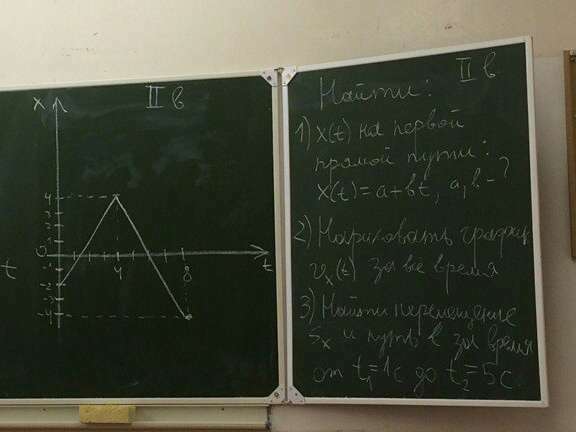 II в
x
4
3
2
1
0
-1
-2
-3
-4
4
8
t
t
II в
Найти:
1) x(t) на первой
прямой пути:
x(t) = a + bt, a, b - ?
2) Нарисовать график
υx(t) за все время
3) Найти перемещение
Sx и путь l за время
от t1 = 1c до t2 = 5c.